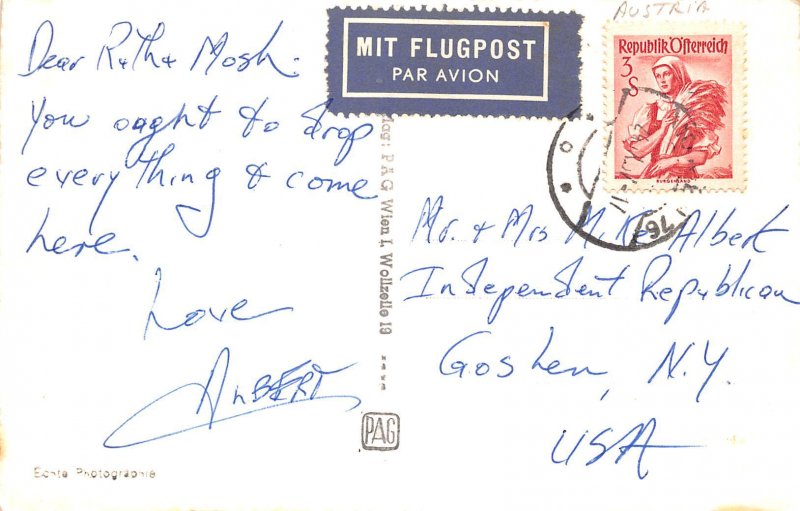 Dear Ruth & Mosh:
You ought to drop
everything & come
here.
Love
ALBERT
Echte Photographie
Verlag: PAG Wien I, Wollzeile 19
PAG
MIT FLUGPOST
PAR AVION
AUSTRIA
Republik Österreich
3
S
BURGENLAND
Mr. & Mrs Mike Albert
Independent Republican
Goshen, N.Y.
USA